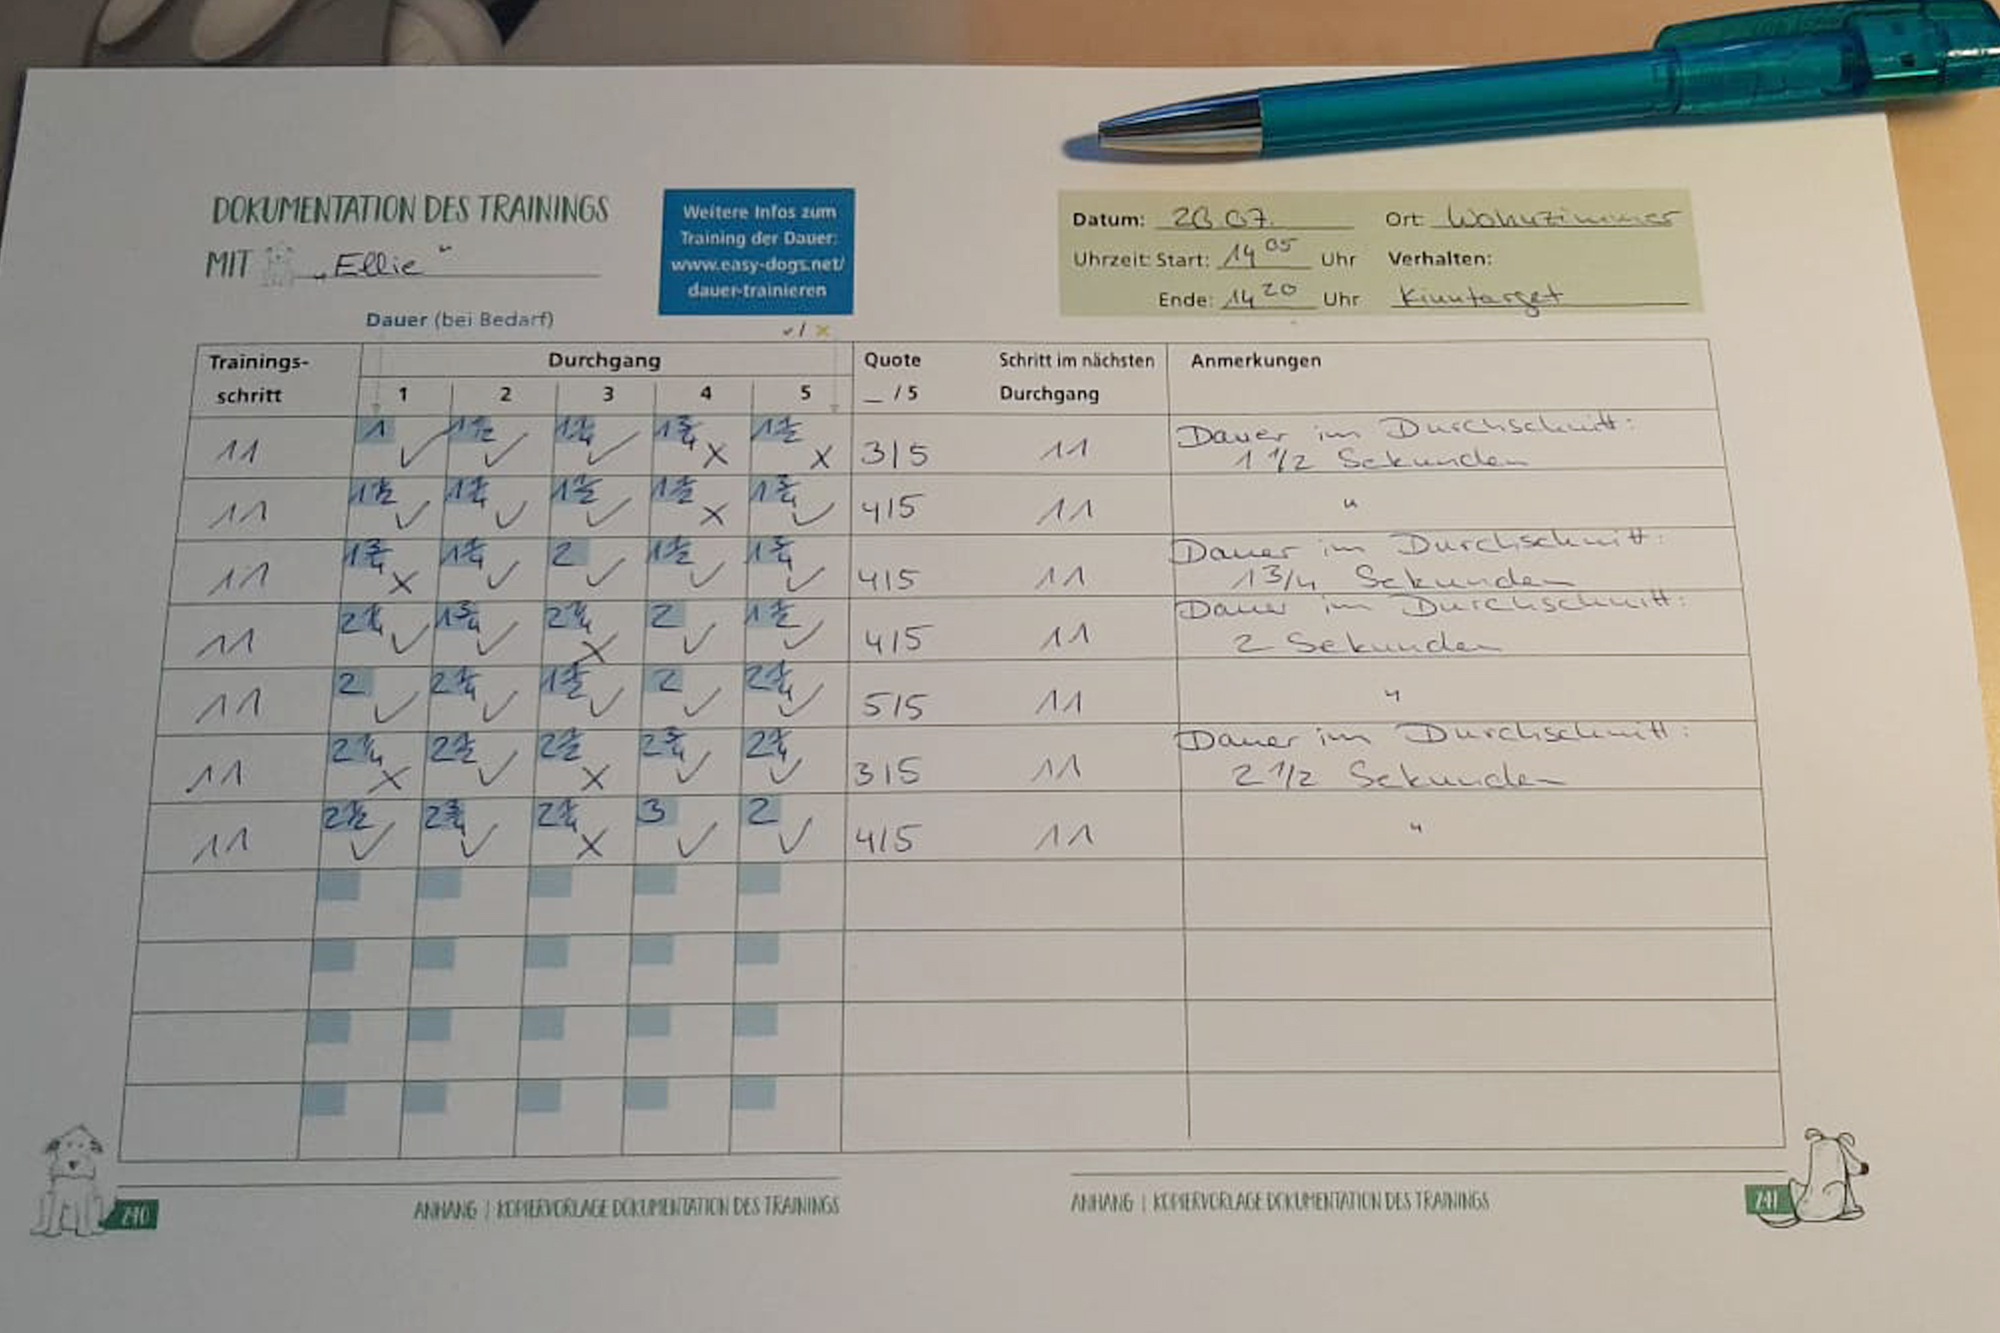 DOKUMENTATION DES TRAININGS
MIT „Ellie“
Weitere Infos zum
Training der Dauer:
www.easy-dogs.net/
dauer-trainieren
Datum: Ort: Wohnzimmer
Uhrzeit: Start: 14 05 Uhr Verhalten:
Ende: 14 20 Uhr Kinntarget
Dauer (bei Bedarf)
✓ / ×
Trainings- Durchgang Quote Schritt im nächsten Anmerkungen
schritt 1 2 3 4 5 _ / 5 Durchgang
11 1 ✓ 1 1/2 ✓ ✓ 1 3/4 × 1 1/2 × 3/5 11 Dauer im Durchschnitt:
1 1/2 Sekunden
11 1 1/2 ✓ ✓ 1 1/2 ✓ 1 1/2 × 1 3/4 ✓ 4/5 11 "
11 1 3/4 × ✓ 2 ✓ 1 1/2 ✓ ✓ 4/5 11 Dauer im Durchschnitt:
1 3/4 Sekunden
11 2 1/4 ✓ 1 3/4 ✓ 2 1/4 × 2 ✓ 1 1/2 ✓ 4/5 11 Dauer im Durchschnitt:
2 Sekunden
11 2 ✓ 2 1/4 ✓ 1 1/2 ✓ 2 ✓ 2 1/4 ✓ 5/5 11 "
11 2 1/4 × 2 1/2 ✓ 2 1/2 × 2 3/4 ✓ 2 1/4 ✓ 3/5 11 Dauer im Durchschnitt:
2 1/2 Sekunden
11 2 1/2 ✓ 2 3/4 ✓ 2 1/4 × 3 ✓ 2 ✓ 4/5 11 "
240 ANHANG | KOPIERVORLAGE DOKUMENTATION DES TRAININGS
ANHANG | KOPIERVORLAGE DOKUMENTATION DES TRAININGS 241